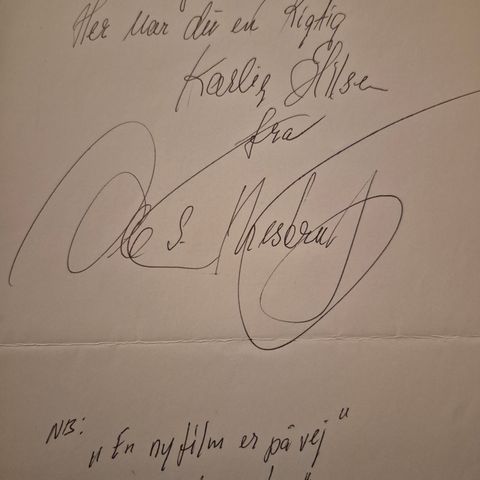 Her har du en Rigtig
Kærlig Hilsen
fra
Ole S.
NB:
"En ny film er på vej"